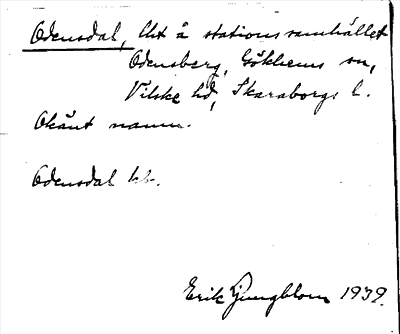 Odensdal, lht å stationssamhället
Odensberg, Gökhems sn,
Vilske hd, Skaraborgs l.
Okänt namn.
Odensdal kk.
Erik Ljungblom 1939.